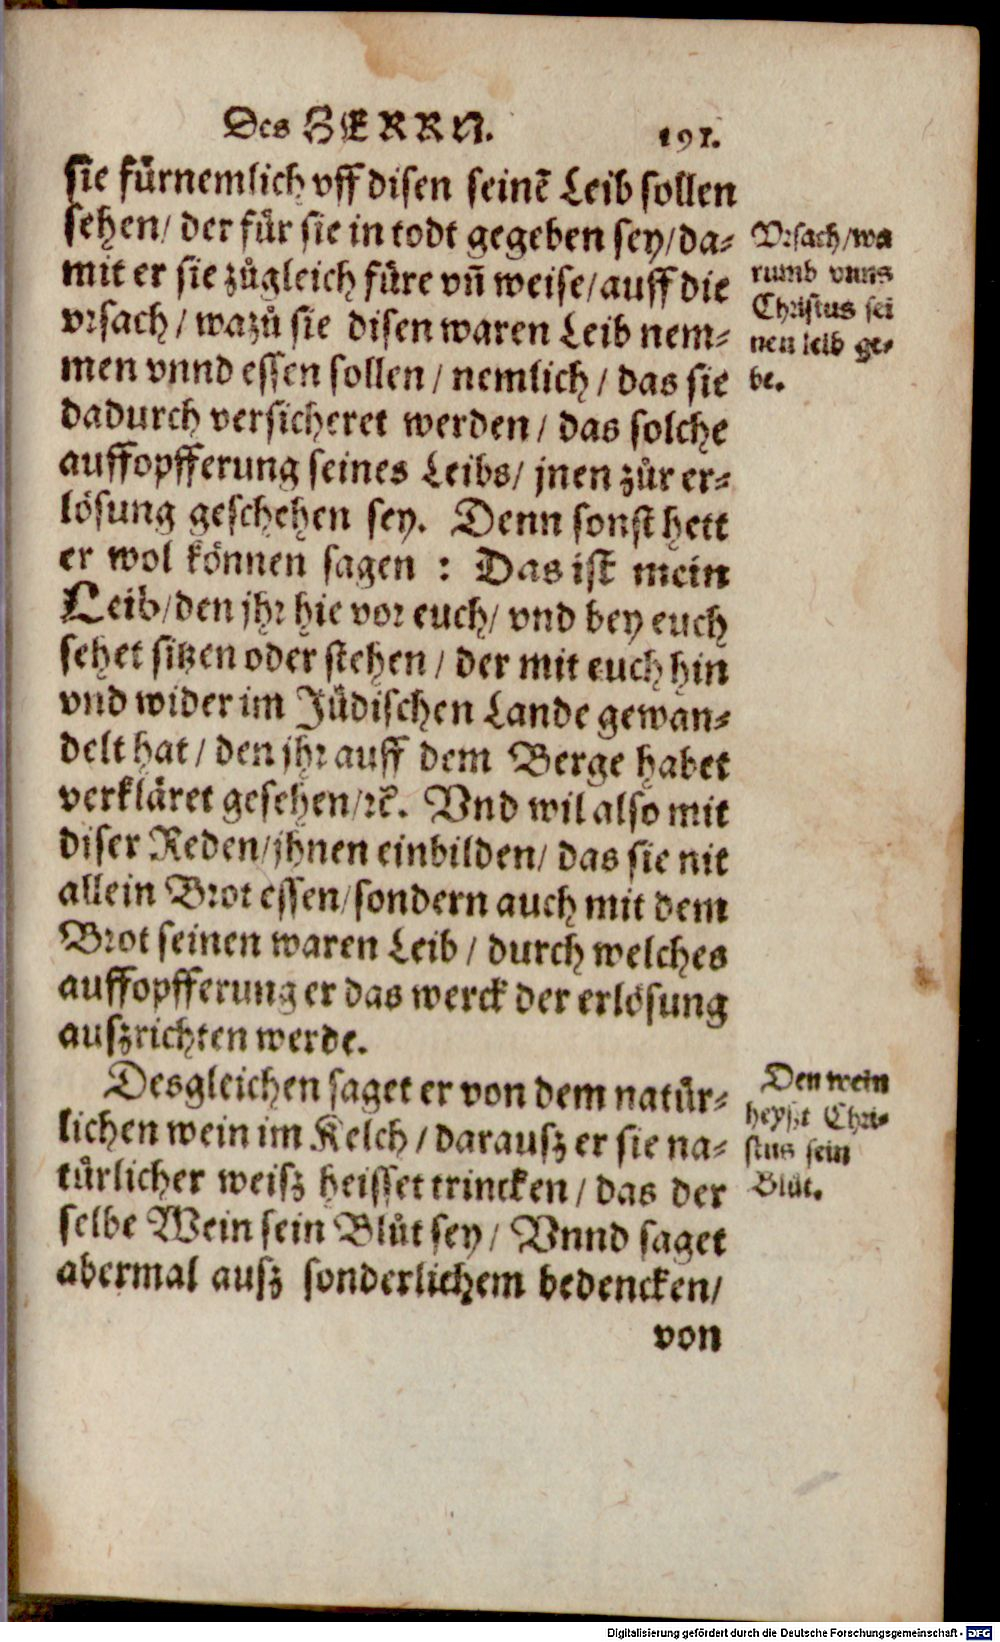 Des HERRN. 191.
sie fürnemlich vff disen seinē Leib sollen
sehen/ der für sie in todt gegeben sey/ da-
mit er sie zůgleich füre vn̄ weise/ auff die
vrsach/ wazů sie disen waren Leib nem-
men vnnd essen sollen/ nemlich/ das sie
dadurch versicheret werden/ das solche
auffopfferung seines Leibs/ jnen zůr er-
lösung geschehen sey. Denn sonst hett
er wol können sagen : Das ist mein
Leib/ den jhr hie vor euch/ vnd bey euch
sehet sitzen oder stehen/ der mit euch hin
vnd wider im Jüdischen Lande gewan-
delt hat/ den jhr auff dem Berge habet
verkläret gesehen/ ꝛc. Vnd wil also mit
diser Reden/ jhnen einbilden/ das sie nit
allein Brot essen/ sondern auch mit dem
Brot seinen waren Leib/ durch welches
auffopfferung er das werck der erlösung
auszrichten werde.
Desgleichen saget er von dem natür-
lichen wein im Kelch/ darausz er sie na-
türlicher weisz heisset trincken/ das der
selbe Wein sein Blůt sey/ Vnnd saget
abermal ausz sonderlichem bedencken/
von
Vrsach/ wa
rumb vnns
Christus sei
nen leib ge-
be.
Den wein
heyszt Chri-
stus sein
Blůt.
Digitalisierung gefördert durch die Deutsche Forschungsgemeinschaft - DFG